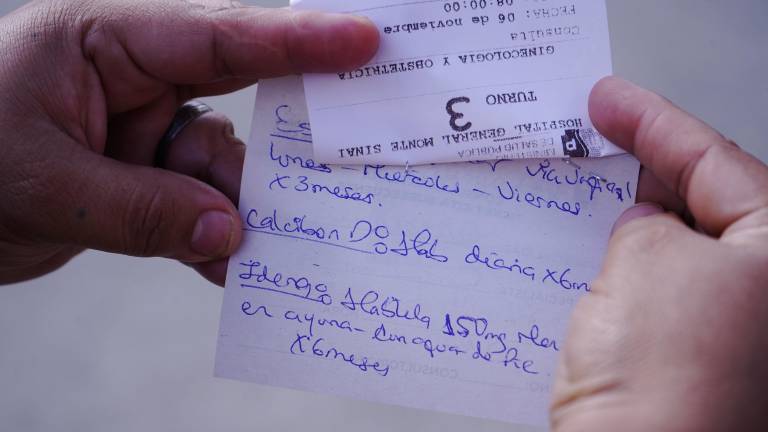 HOSPITAL GENERAL MONTE SINAI
TURNO 3
GINECOLOGIA Y OBSTETRICIA
Consulta
FECHA: 06 de noviembre
08:00:00
DE SALUD PUBLICA
via vaginal
lunes - Miercoles - Viernes.
X 3 meses.
Calcibon D: 1 tab diaria x 6m
1 tableta 150mg
en ayuna - con agua de pie.
X 6 meses